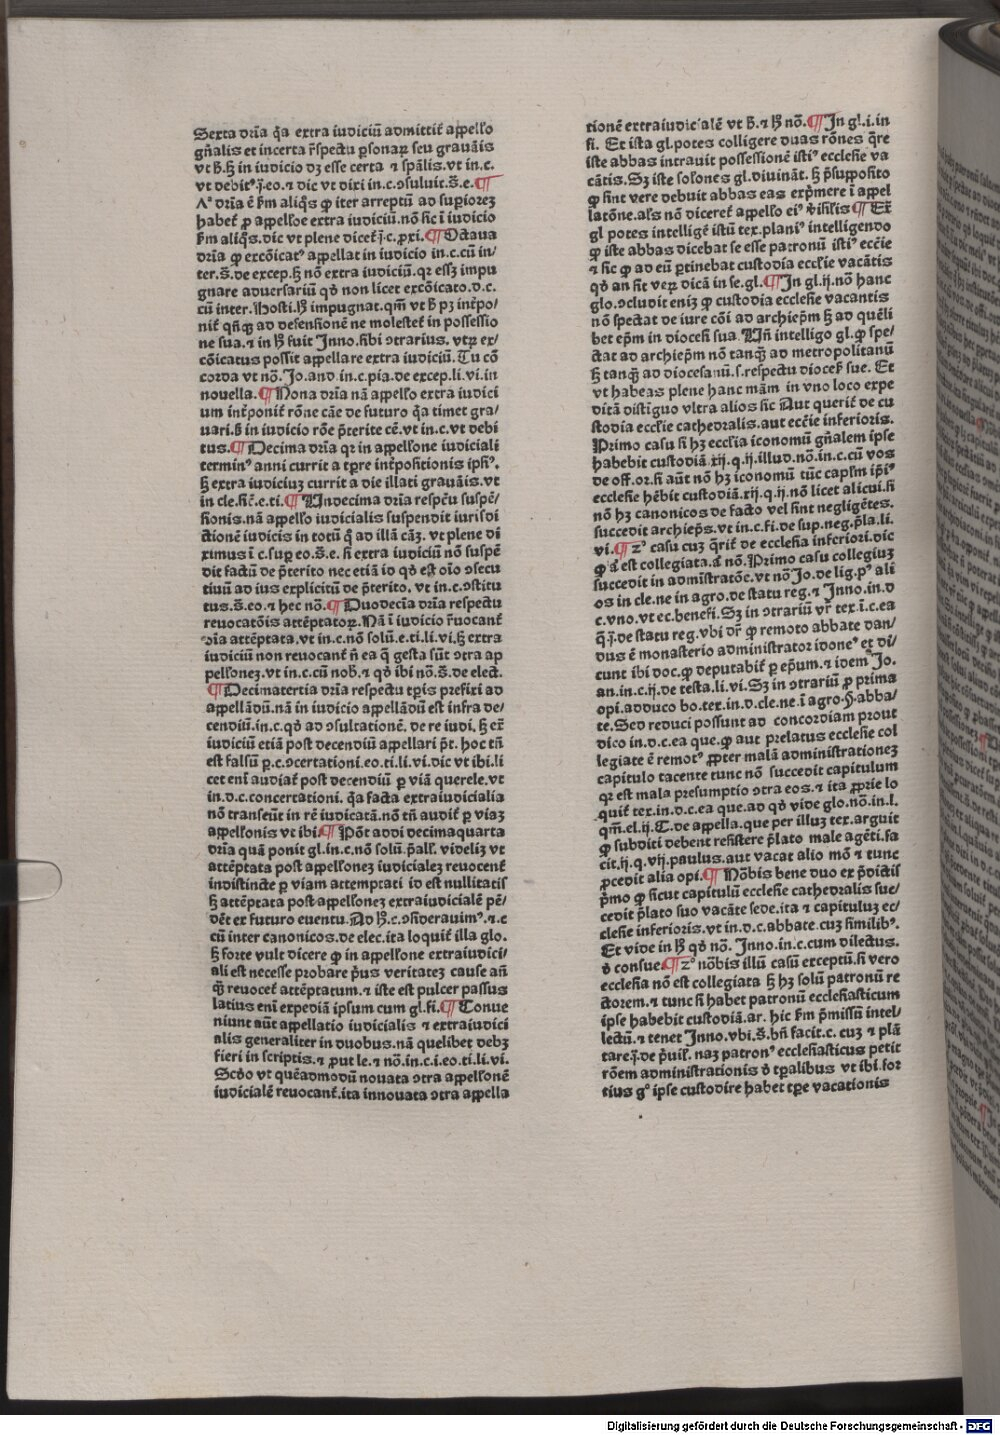 Sexta dr̄ia q̄a extra iudiciū admittit᷑ appell'o
gn̄alis et incerta r̄spectu ꝑsonaꝝ seu grauaīs
vt ḃ.ẖ in iudicio dꝫ esse certa ⁊ spālis.vt in.c.
vt debitꝰ.j̄.eo.⁊ dic vt dixi in.c.ↄsuluit.s̄.e.¶
dr̄ia ē ẖm aliq̄s ꝙ iter arreptū ad suꝑioreꝫ
habet᷑ ꝓ appell'oe extra iudiciū.nō sic ī iudicio
ẖm aliq̄s.dic vt plene dicet᷑ j̄.c.ꝓxi.¶Octaua
dr̄ia ꝙ excōicatꝰ appellat in iudicio in.c.cū in/
ter.s̄.de excep.ẖ nō extra iudiciū.qꝛ essꝫ impu
gnare aduersariū qḋ non licet excōicato.d.c.
cū inter.Hosti.lꝫ impugnat.qm̄ vt ḃ pꝫ intꝰpo/
nit᷑ qn̄qꝫ ad defensionē ne molestet᷑ in possessio
ne sua.⁊ in lꝫ fuit Inno.sibi ↄtrarius.vtꝝ ex/
cōicatus possit appellare extra iudiciū.Tu cō
corda vt nō.Jo.and.in.c.pia.de excep.li.vi.in
nouella.¶Nona dr̄ia nā appell'o extra iudici
um intꝰponit᷑ rōne cāe de futuro q̄a timet gra/
uari.ḃ in iudicio rōe p̄terite cē.vt in.c.vt debi
tus.¶Decima dr̄ia qꝛ in appell'one iudiciali
terminꝰ anni currit a tꝑe intꝰpositionis ipsiꝰ.
ẖ extra iudiciuꝫ currit a die illati grauaīs.vt
in cle.sic̄.e.ti.¶Undecima dr̄ia respc̄u suspē/
sionis.nā appell'o iudicialis suspendit iurisdi
ctionē iudicis in totū q̄ ad illā cāꝫ.vt plene di
ximus ī c.suꝑ eo.s̄.e.si extra iudiciū nō suspē
dit factū de p̄terito nec etiā id qḋ est oīo ↄsecu
tiuū ad ius explicitū de p̄terito.vt in.c.ↄstitu
tus.s̄.eo.⁊ hec nō.¶Duodecīa dr̄ia respectu
reuocatōis attēptatoꝝ.Nā ī iudicio r̄uocant᷑
oīa attēptata.vt in.c.nō solū.e.ti.li.vi.ẖ extra
iudiciū non reuocant᷑ n̄ ea q̄ gesta sūt ↄtra ap
pell'oneꝫ.vt in.c.cū nob̄.⁊ qḋ ibi nō.s̄.de elect.
¶Decimatertia dr̄ia respectu tꝑis prefixi ad
appellādū.nā in iudicio appellādū est infra de/
cendiū.in.c.qḋ ad ↄsultationē.de re iudi.ẖ ex̄
iudiciū etiā post decendiū appellari p̄t.hoc tn̄
est falsū ꝑ.c.ↄcertationi.eo.ti.li.vi.dic vt ibi.li
cet eni᷑ audiat᷑ post decendiū ꝑ viā querele.vt
in.d.c.concertationi.q̄a facta extraiudicialia
nō transeūt in rē iudicatā.nō tn̄ audit᷑ ꝑ viaꝫ
appell'onis vt ibi.¶Pōt addi decimaquarta
dr̄ia quā ponit gl.in.c.nō solū.p̄all'.videlicꝫ vt
attēptata post appell'oneꝫ iudicialeꝫ reuocent᷑
indistincte ꝑ viam attemptati id est nullitatis
ẖ attēptata post appell'oneꝫ extraiudicialē pē/
dēt ex futuro euentu.Ad lꝫ.c.ↄsiderauimꝰ.⁊.c
cū inter canonicos.de elec.ita loquit᷑ illa glo.
ẖ forte vult dicere ꝙ in appell'one extraiudici/
ali est necesse probare p̄us veritateꝫ cause an̄
q̄ reuocet᷑ attēptatum.⁊ iste est pulcer passus
latius eni᷑ expediā ipsum cum gl.fi.¶Conue
niunt aūt appellatio iudicialis ⁊ extraiudici
alis generaliter in duobus.nā quelibet debꝫ
fieri in scriptis.⁊ ꝓut le.⁊ nō.in.c.i.eo.ti.li.vi.
Scḋo vt quēadmodū nouata ↄtra appell'onē
iudicialē reuocant᷑.ita innouata ↄtra appella
tionē extraiudicialē vt ḃ.⁊ lꝫ nō.¶In gl.i.in
fi. Et ista gl.potes colligere duas rōnes q̄re
iste abbas intrauit possessionē istiꝰ ecclesie va
cātis.Sꝫ iste solones gl.diuināt.ẖ p̄supposito
ꝙ sint vere debuit abbas eas exp̄mere ī appel
latōne.al's nō diceret᷑ appell'o eiꝰ v̇isilis¶Ex̄
gl potes intellige᷑ istū tex.planiꝰ intelligendo
ꝙ iste abbas dicebat se esse patronū istiꝰ ecc̄ie
⁊ sic ꝙ ad eū ꝑtinebat custodia eccl'ie vacātis
qḋ an sit veꝝ dicā in se.gl.¶In gl.ij.nō hanc
glo.ↄcludit eniꝫ ꝙ custodia ecclesie vacantis
nō spectat de iure cōi ad archiep̄m ẖ ad quēli
bet ep̄m in diocesi sua.Un̄ intelligo gl.ꝙ spe/
ctat ad archiep̄m nō tanq̄ ad metropolitanū
ẖ tanq̄ ad diocesanū.s.respectu diocef᷑ sue. Et
vt habeas plene hanc mām in vno loco expe
ditā distīguo vltra alios sic Aut querit᷑ de cu
stodia eccl'ie cathedralis.aut ecc̄ie inferioris.
Primo casu si hꝫ eccl'ia iconomū gn̄alem ipse
habebit custodiā.xij.q.ij.illud.nō.in.c.cū vos
de off.or.si aūt nō hꝫ iconomū tūc capl'm ip̄iꝰ
ecclesie hēbit custodiā.xij.q.ij.nō licet alicui.si
nō hꝫ canonicos de facto vel sint negligētes.
succedit archiep̄s.vt in.c.fi.de sup.neg.p̄la.li.
vi.¶2ꝰ casu cuꝫ q̄rit᷑ de ecclesia inferiori.dic
ꝙ aut est collegiata.aut nō.Primo casu collegiuꝫ
succedit in admīstratōe.vt nō Jo.de lig.pꝰ ali
os in cle.ne in agro.de statu reg.⁊ Inno.in.d
c.vno.vt ec.benefi.Sꝫ in ↄtrariū vr̄ tex.ī.c.ea
q̄.j̄.de statu reg.vbi dr̄ ꝙ remoto abbate dan/
dus ē monasterio administrator idoneꝰ et di/
cunt ibi doc.ꝙ deputabit᷑ ꝑ ep̄um.⁊ idem Jo.
an.in.c.ij.de testa.li.vi.Sꝫ in ↄtrariū ꝓ prima
opi.adduco bo.tex.in.d.cle.ne ī agro.§.abba/
te.Sed reduci possunt ad concordiam prout
dico in.d.c.ea que.ꝙ aut prelatus ecclesie col
legiate ē remotꝰ ꝓpter malā administrationeꝫ
capitulo tacente tunc nō succedit capitulum
qꝛ est mala presumptio ↄtra eos.⁊ ita ꝓprie lo
quit᷑ tex.in.d.c.ea que.ad qḋ vide glo.nō.in.l.
qm̄.el.ij.C.de appella.que per illuꝫ tex.arguit
ꝙ subditi debent resistere p̄lato male agēti.fa
cit.ij.q.vij.paulus.aut vacat alio mō ⁊ tunc
ꝓcedit alia opi.¶Nōbis bene duo ex p̄dictis
p̄mo ꝙ sicut capitulū ecclesie cathedralis suc/
cedit p̄lato suo vacāte sede.ita ⁊ capituluꝫ ec/
clesie inferioris.vt in.d.c.abbate.cuꝫ similibꝰ.
Et vide in lꝫ qḋ nō. Inno.in.c.cum dilectus.
ḋ consue.¶2ꝰ nōbis illū casū exceptū.si vero
ecclesia nō est collegiata ẖ hꝫ solū patronū re
ctorem.⁊ tunc si habet patronū ecclesiasticum
ipse habebit custodiā.ar. hic ẖm p̄missū intel/
lectū.⁊ tenet Inno.vbi.s̄.bn̄ facit.c. cuꝫ ⁊ plā
tare.j̄.de p̄uil'. naꝫ patronꝰ ecclesiasticus petit
rōem administrationis ḋ tꝑalibus vt ibi.for
tius gͦ ipse custodire habet tꝑe vacationis
Digitalisierung gefördert durch die Deutsche Forschungsgemeinschaft - DFG